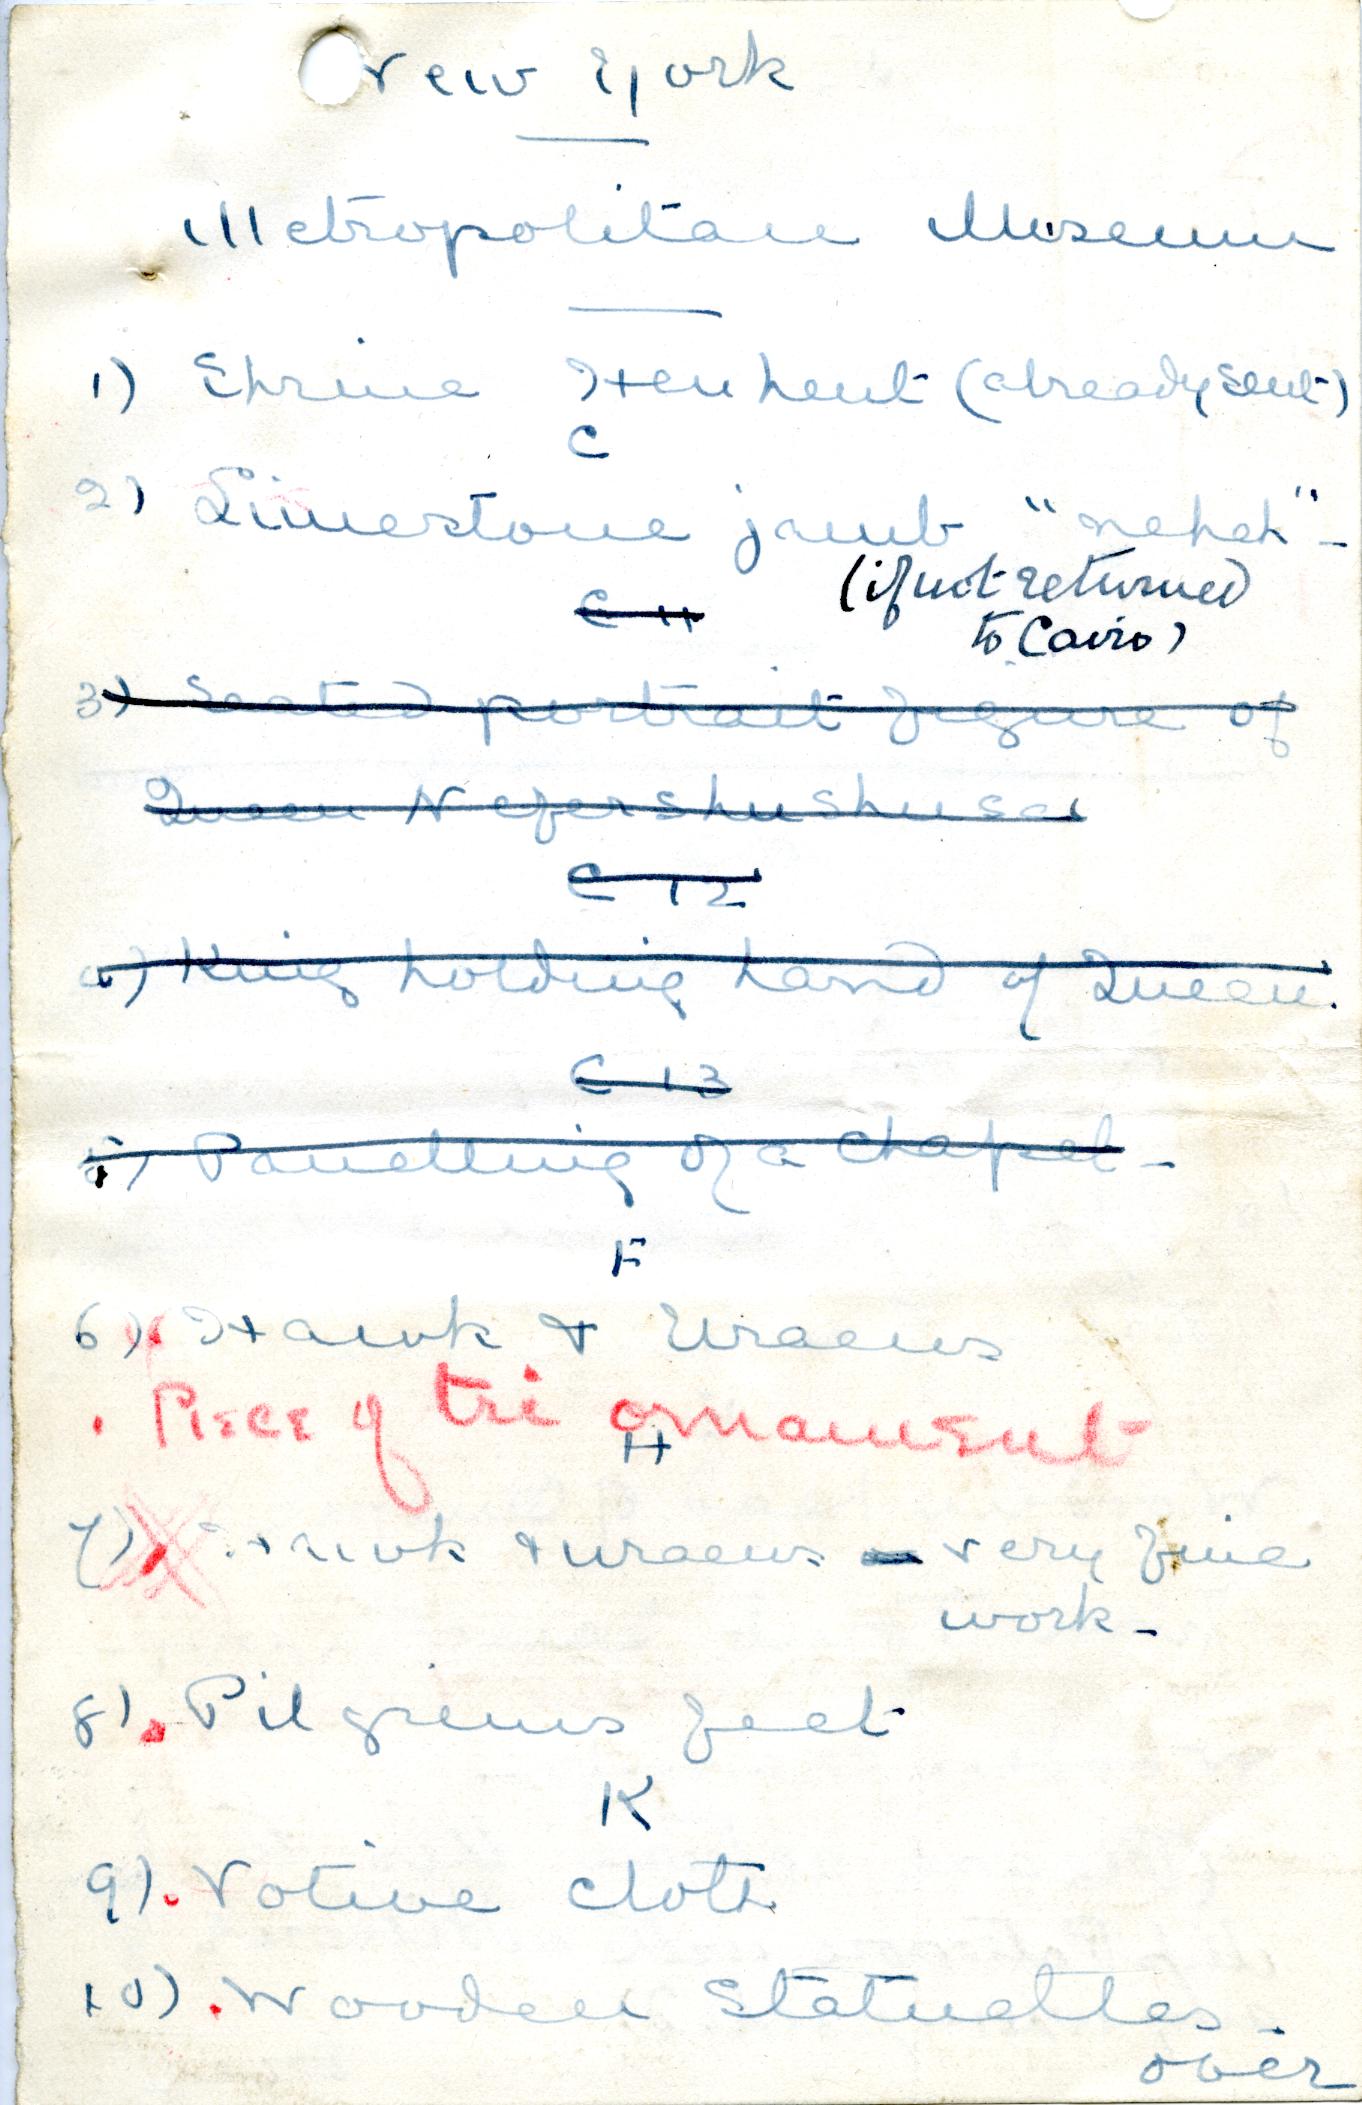 New York
Metropolitan Museum
1) Shrine Henhenit (already sent)
C
2) Limestone jamb "nehek" -
(if not returned
to Cairo)
C 11
3) Seated portrait figure of
Queen Nefershushusa
C 12
4) King holding hand of Queen.
C 13
5) Panelling of a chapel -
F
6) Hawk & Uraeus
. Piece of tri ornament
H
7) Hawk & uraeus - very fine
work -
8) . Pilgrims feet
K
9) . Votive cloth
10) . Wooden Statuettes -
over